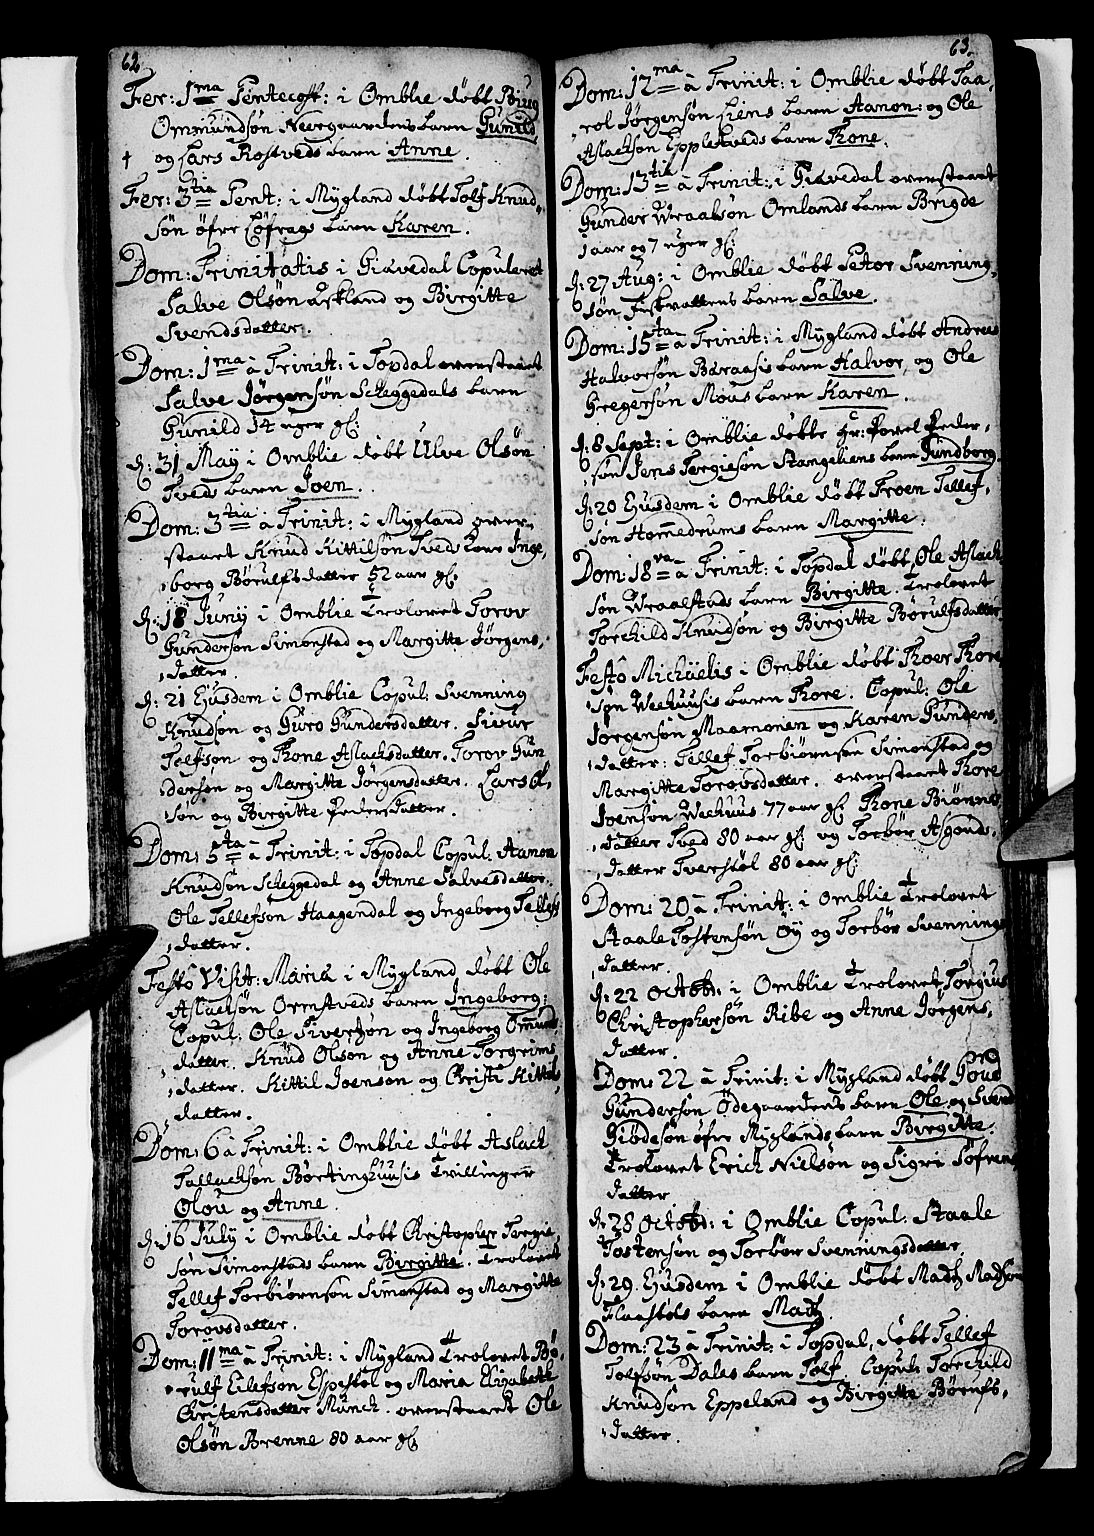 62.
Fer: 1ma Pentecost: i Omblie døbt Biug
Ommundsøn Neergaardens barn Gunild
† og Lars Rostveds barn Anne.
Fer: 3tia Pent: i Mygland døbt Tolf Knud-
søn øfre Løfrags barn Karen.
Dom: Trinitatis i Giævedal Copuleret
Salve Olsøn Askland og Birgitte
Svendsdatter.
Dom: 1ma à Trinit: i Topdal overstaaet
Salve Jørgensøn Scheggedals barn
Gunild 14 uger gl:
d: 31 May i Omblie døbt Ulve Olsøn
Tveds barn Joen.
Dom: 3tia à Trinit: i Mygland over-
staaet Knud Kittilsøn Tveds Inge-
borg Børulfsdatter 52 aar gl:
d: 18 Juny i Omblie Trolovet Torov
Gundersøn Simonstad og Margitte Jørgens-
datter.
d: 21 Ejusdem i Omblie Copul: Svenning
Knudsøn og Guro Gundersdatter. Sivur
Tolfsøn og Thone Aslacksdatter. Torov Gun
dersøn og Margitte Jørgensdatter. Lars Ol-
søn og Birgitte Pedersdatter.
Dom: 5ta à Trinit: i Topdal Copul: Aanon
Knudsøn Scheggedal og Anne Salvesdatter.
Ole Tellefsøn Haagendal og Ingeborg Tellefs
datter.
Festo Visit: Mariæ i Mygland døbt Ole
Aslacksøn Ormstveds barn Ingeborg:
Copul: Ole Sivertsøn og Ingeborg Omunds
datter. Knud Olsøn og Anne Torgrims
datter. Kittil Joensøn og Christi Kittils
datter.
Dom: 6 à Trinit: i Omblie døbt Aslack
Tallacksøn Børtinghuusis Tvillinger
Olou og Anne.
d: 16 July i Omblie døbt Christopher Tergie-
søn Simonstads barn Birgitte. Trolovet
Tellef Torbiørnsøn Simonstad og Margitte
Torovsdatter.
Dom: 11ma à Trinit: i Mygland Trolovet Bø-
rulf Eilefsøn Espestøl og Maria Elizabeth
Christensdatter Munck. overstaaet Ole
Olsøn Brenne 80 aar gl:
63.
Dom: 12ma à Trinit: i Omblie døbt Taa-
rol Jørgensøn Liens barn Aanon: og Ole
Aslacksøn Eppletveds barn Thone.
Dom: 13tia à Trinit: i Giævedal overstaaet
Gunder Wraalsøn Omlands barn Brigde
1 aar og 7 uger gl:
d: 27 Aug: i Omblie døbt Petor Svenning-
søn Fiskvattens barn Salve.
Dom: 15ta à Trinit: i Mygland døbt Andreas
Halvorsøn Baraasis barn Halvor, og Ole
Gregersøn Mous barn Karen.
d: 8 Sept: i Omblie døbte Hr: Povel Peder-
søn Jens Tergiesøn Stangeliens barn Gundborg.
d: 20 Ejusdem i Omblie døbt Troen Tellef-
søn Homedrums barn Margitte.
Dom: 18va à Trinit: i Topdal døbt Ole Aslack
søn Wraalstads barn Birgitte. Trolovet
Torchild Knudsøn og Birgitte Børulfsdatter
Festo Michaelis i Omblie døbt Thoer Thore
søn Weehuusis barn Thore. Copul: Ole
Jørgensøn Maamonen og Karen Gunders-
datter: Tellef Torbiørnsøn Simonstad og
Margitte Torovsdatter. overstaaet Thore
Joensøn Weehuus 77 aar gl Thone Biønns-
datter Tved 80 aar gl og Torbør Asgouds-
datter Tverstøl 80 aar gl:
Dom: 20 à Trinit: i Omblie Trolovet
Staale Tostensøn Øy og Torbør Svennings-
datter.
d: 22 Octobr: i Omblie Trolovet Torgius
Christophersøn Ribe og Anne Jørgens-
datter.
Dom: 22 à Trinit: i Mygland døbt Goue
Gundersøn Ødegaardens barn Ole og Svend
Giødesøn øfre Myglands barn Birgitte.
Trolovet Erich Nielsøn og Sigri Søfrens
datter
d: 28 Octobr: i Omblie Copul: Staale
Tostensøn og Torbør Svenningsdatter.
d: 29. Ejusdem i Omblie døbt Madtz Madsøn
Flaastøls barn Madtz.
Dom: 23 à Trinit: i Topdal, døbt Tellef
Tolfsøn Dales barn Tolf. Copul: Torchild
Knudsøn Eppeland og Birgitte Børufs-
datter.